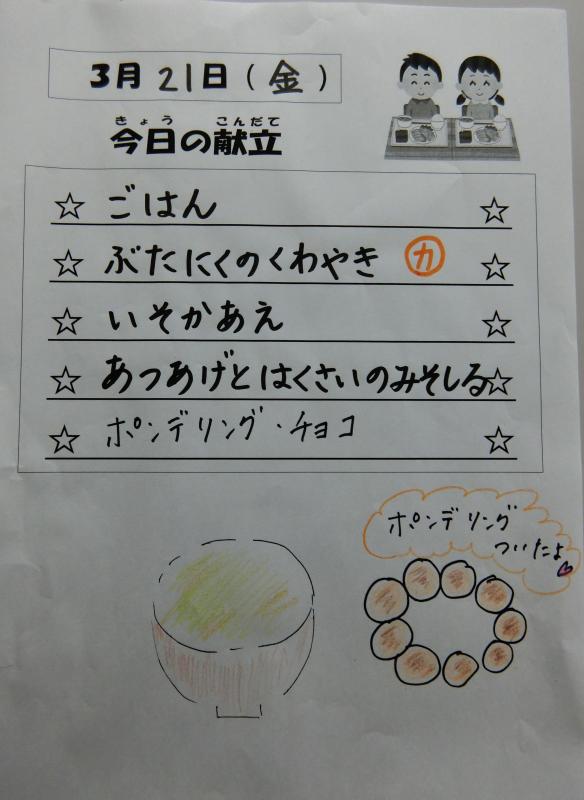 3月21日(金)
きょう こんだて
今日の献立
☆ ごはん ☆
☆ ぶたにくのくわやき カ ☆
☆ いそかあえ ☆
☆ あつあげとはくさいのみそしる ☆
☆ ポンデリング・チョコ ☆
ポンデリング
ついたよ